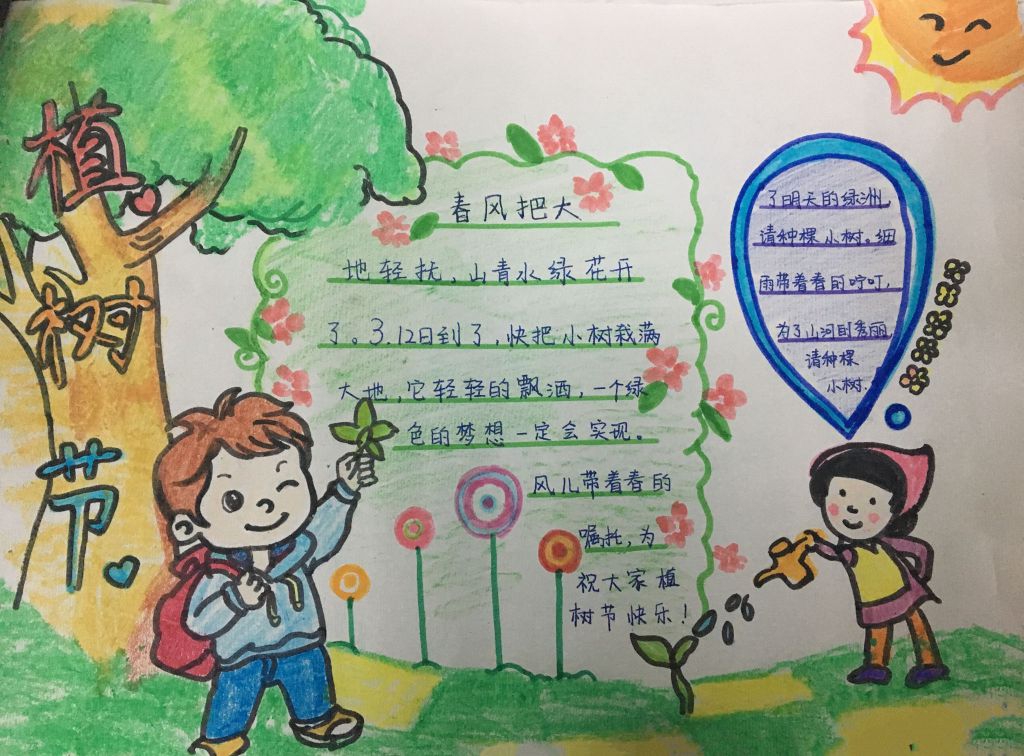 植
树
节
春风把大
地轻抚,山青水绿花开
了。3.12日到了,快把小树栽满
大地,它轻轻的飘洒,一个绿
色的梦想一定会实现。
风儿带着春的
嘱托,为
祝大家植
树节快乐!
了明天的绿洲
请种棵小树。细
雨带着春的咛叮,
为了山河更秀丽
请种棵
小树.